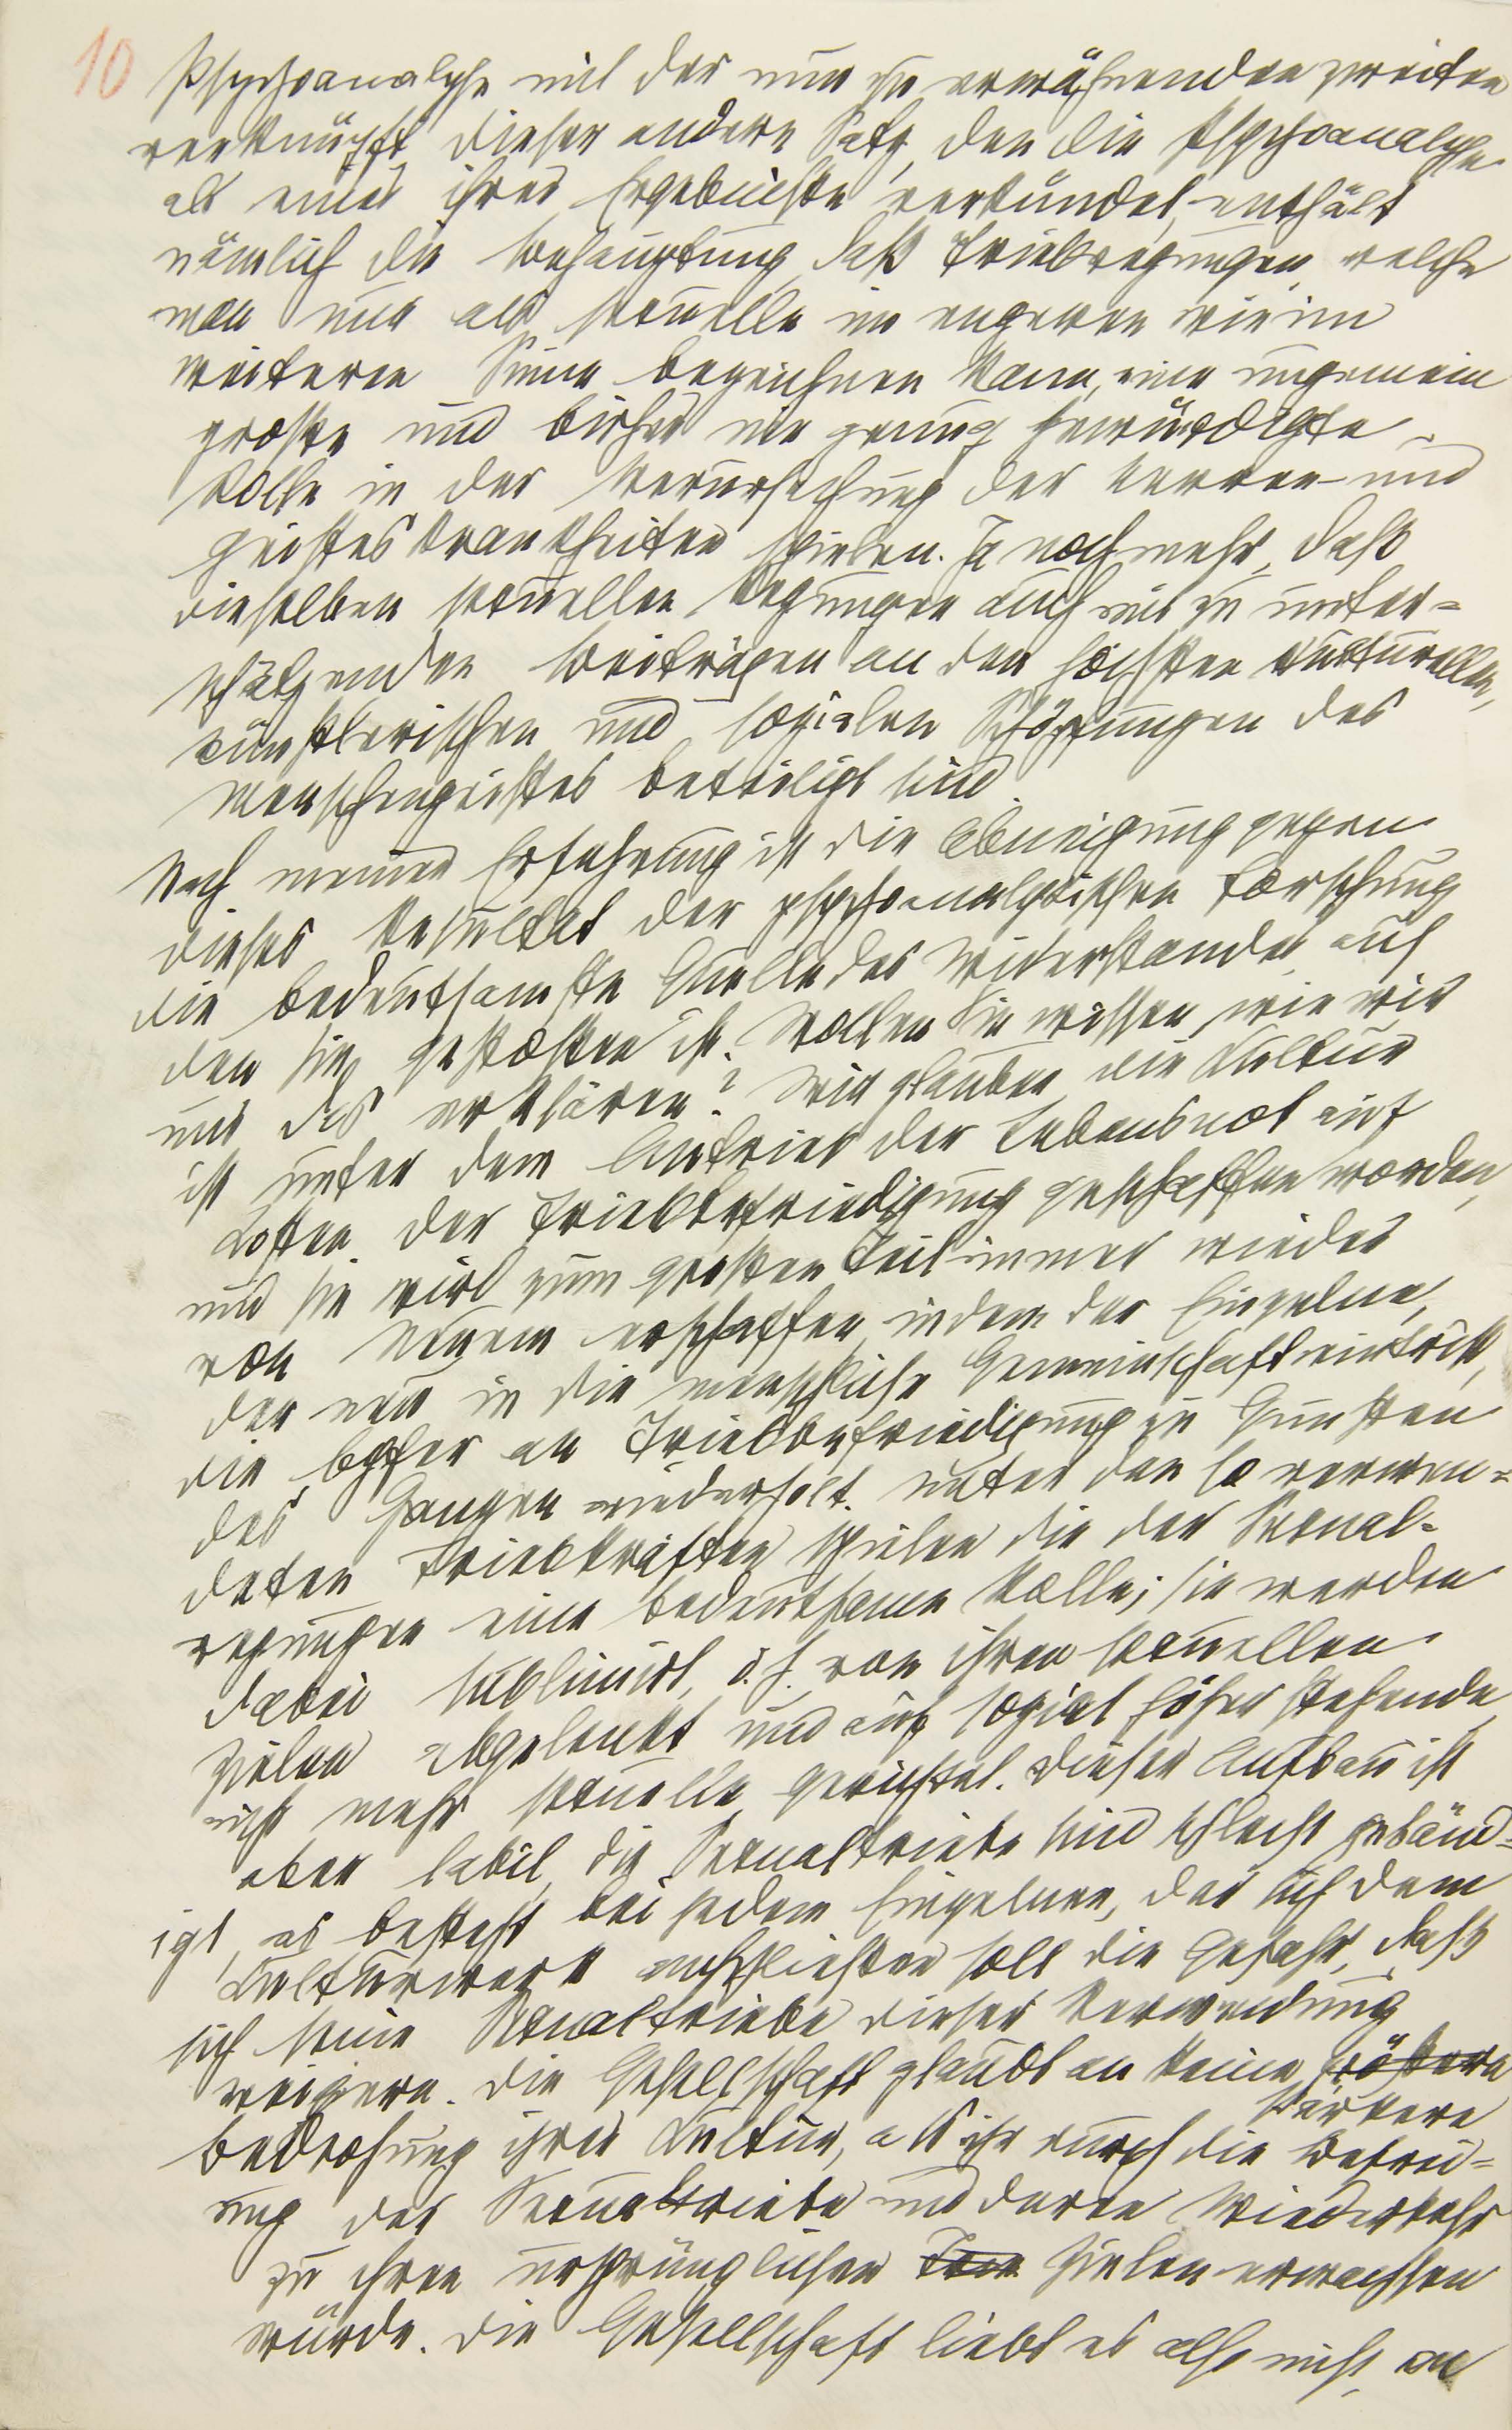 10 Psychoanalyse mit der nun zu erwähnenden zweiten
verknüpft. dieser andere Satz, den die Psychoanalyse
als eines ihrer Ergebnisse verkündet, enthält
nämlich die Behauptung, daß Triebregungen, welche
man nur als sexuelle im engeren wie im
weiteren Sinne bezeichnen kann, eine ungemein
große und bisher nie genug gewürdigte
Rolle in der Verursachung der Nerven- und
Geisteskrankheiten spielen. Ja noch mehr, daß
dieselben sexuellen Regungen auch mit nie zu unter=
schätzenden Beiträgen an den höchsten kulturellen,
künstlerischen und sozialen Schöpfungen des
Menschengeistes beteiligt sind.
Nach meiner Erfahrung ist die Abneigung gegen
dieses Resultat der psychoanalytischen Forschung
die bedeutsamste Quelle des Widerstandes, auf
den sie gestoßen ist. Wollen Sie wissen, wie wir
uns das erklären? Wir glauben, die Kultur
ist unter dem Antrieb der Lebensnot auf
Kosten der Triebbefriedigung geschaffen worden,
und sie wird zum großen Teil immer wieder
von Neuem erschaffen, indem der Einzelne,
der neu in die menschliche Gemeinschaft eintritt,
die Opfer an Triebbefriedigung zu Gunsten
des Ganzen wiederholt. unter den so verwen=
deten Triebkräften spielen die der Sexual-
regungen eine bedeutsame Rolle; sie werden
dabei sublimirt, d.h. von ihren sexuellen
Zielen abgelenkt und auf sozial höher stehende,
nicht mehr sexuelle, gerichtet. Dieser Aufbau ist
aber labil, die Sexualtriebe sind schlecht gebänd=
igt, es besteht bei jedem Einzelnen, der sich dem
Kulturwerk anschließen soll, die Gefahr, daß
sich seine Sexualtriebe dieser Verwendung
weigern. Die Gesellschaft glaubt an keine größere
stärkere
Bedrohung ihrer Kultur, als ihr durch die Befrei=
ung der Sexualtriebe und deren Wiederkehr
zu ihren ursprünglichen Zielen erwachsen
würde. Die Gesellschaft liebt es also nicht, an